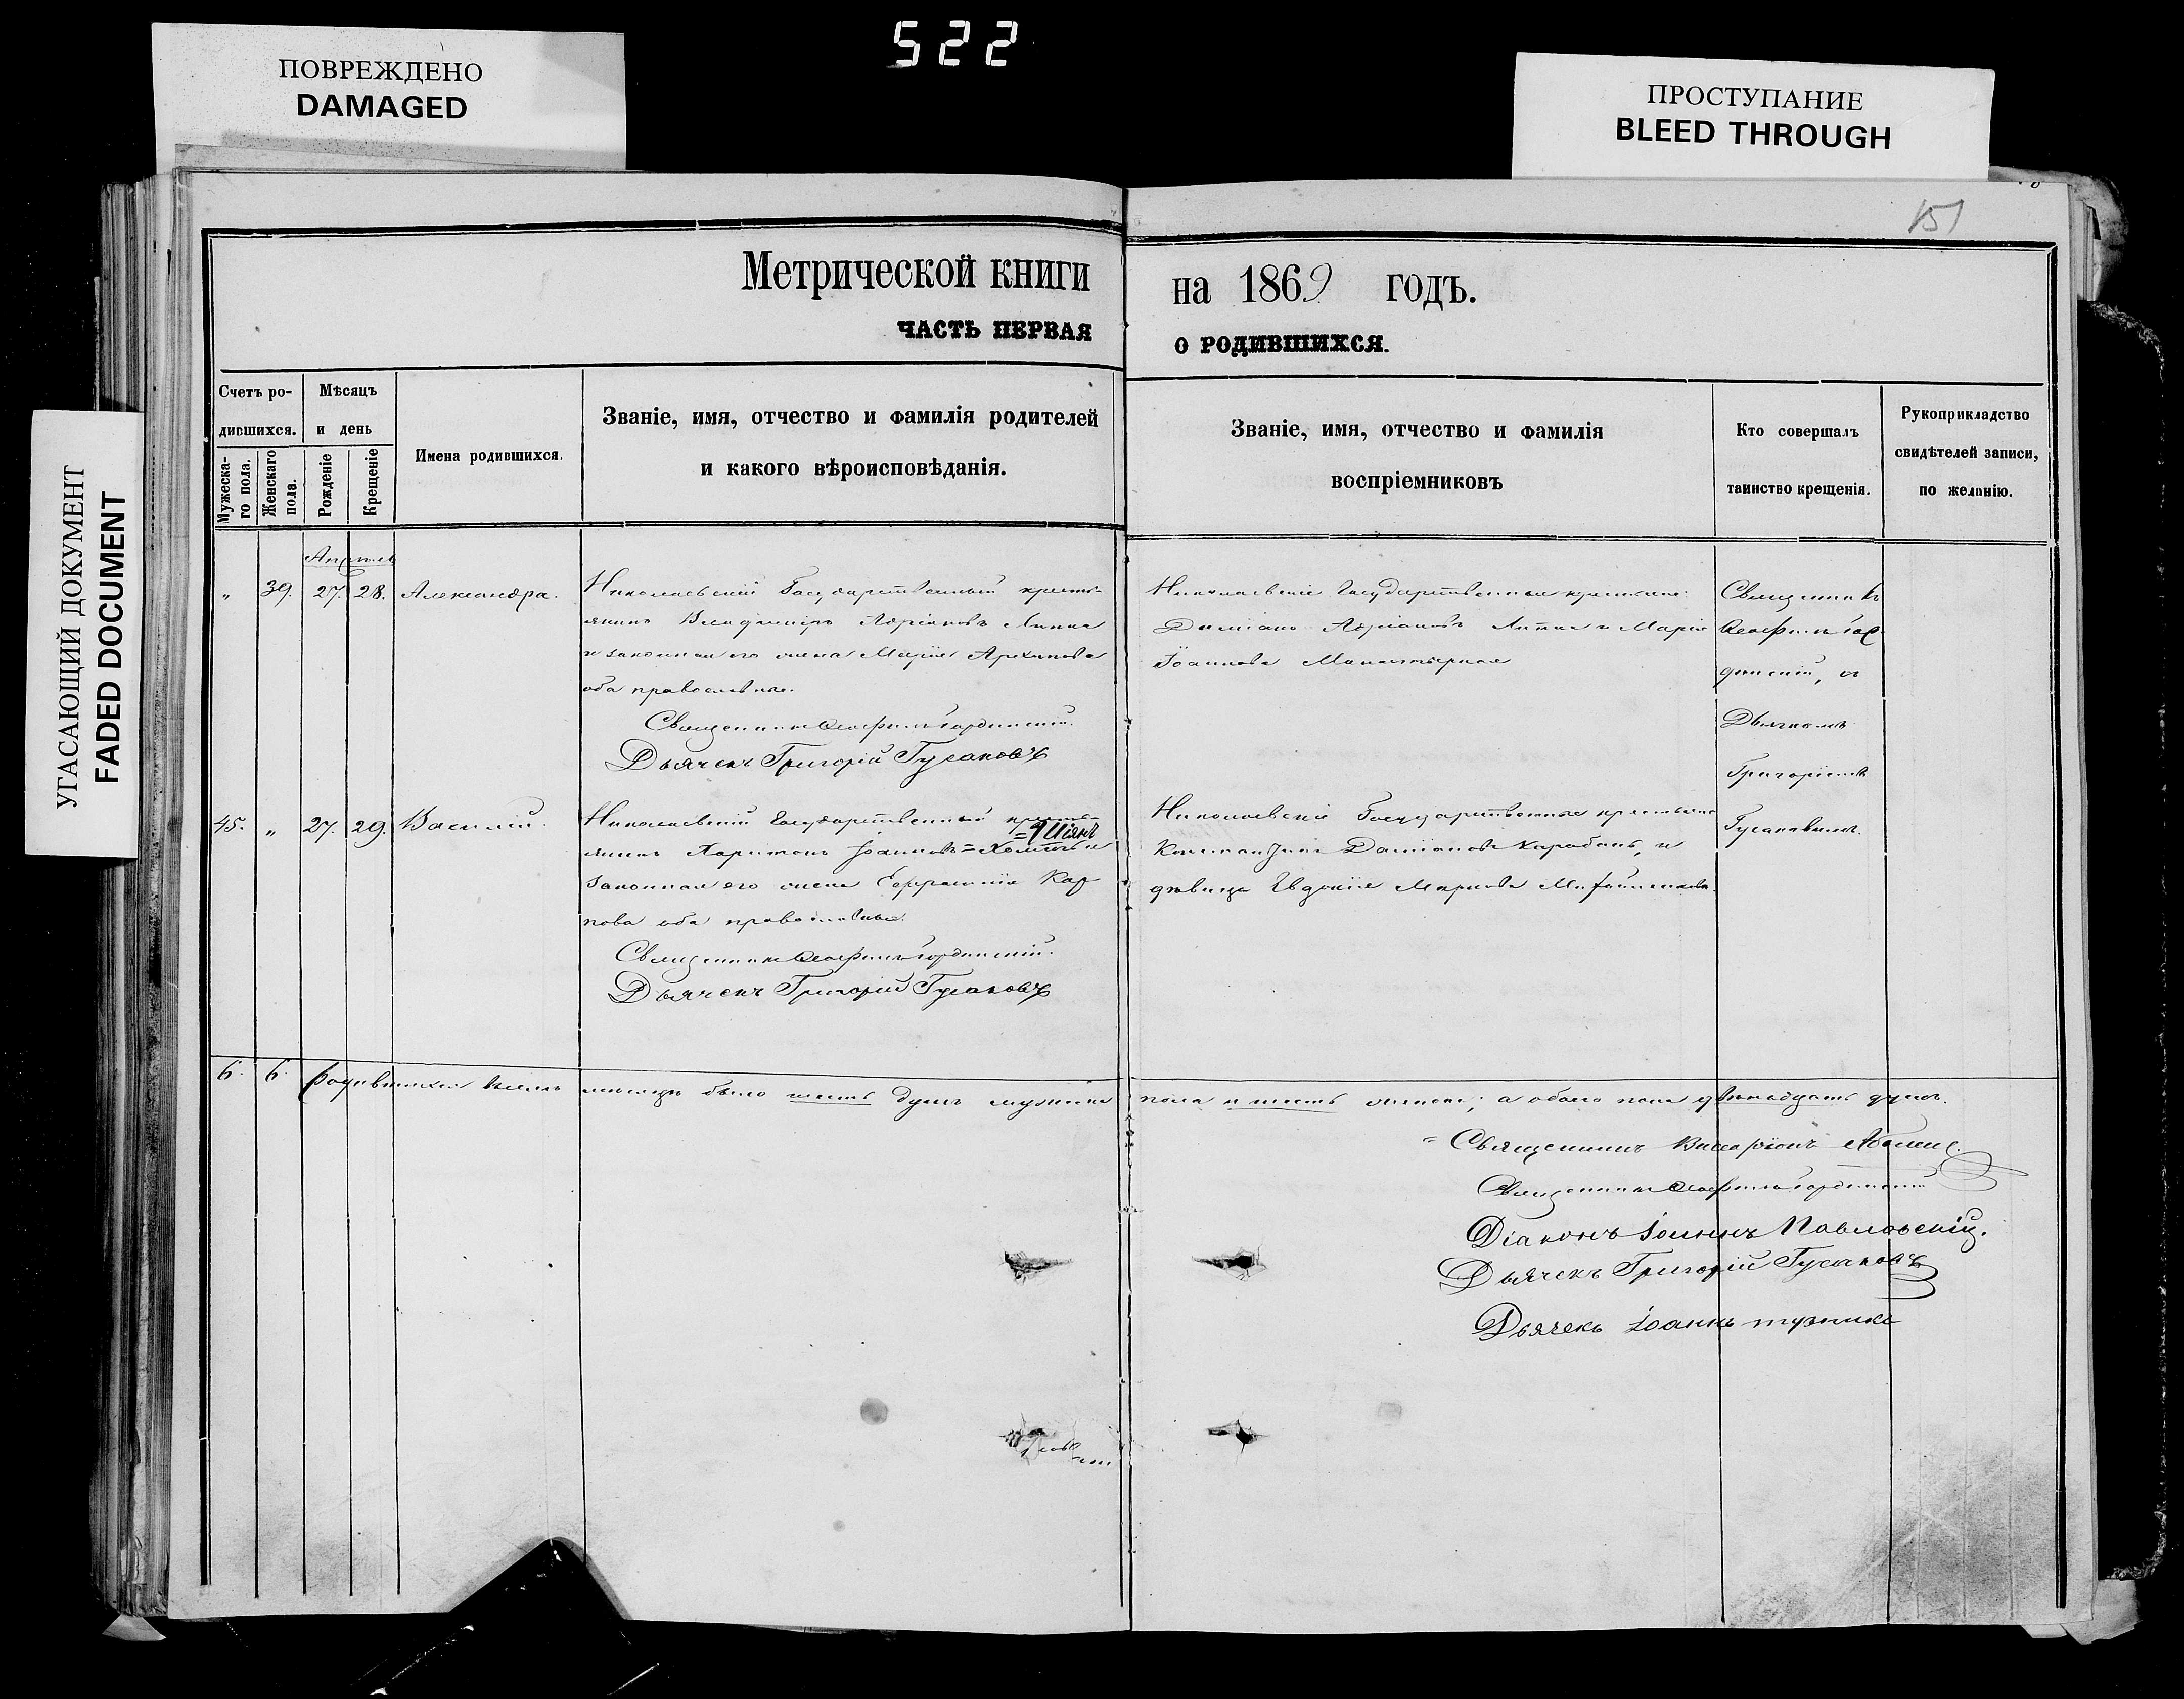 522
ПОВРЕЖДЕНО
DAMAGED
ПРОСТУПАНИЕ
BLEED THROUGH
УГАСАЮЩИЙ ДОКУМЕНТ
FADED DOCUMENT
151
Метрической книги на 1869 годъ.
ЧАСТЬ ПЕРВАЯ О РОДИВШИХСЯ.
Счетъ ро-
дившихся.
Мужеска-
го пола.
Женскаго
пола.
Мѣсяцъ
и день
Рожденіе
Крещеніе
Имена родившихся.
Званіе, имя, отчество и фамилія родителей
и какого вѣроисповѣданія.
Званіе, имя, отчество и фамилія
воспріемниковъ
Кто совершалъ
таинство крещенія.
Рукоприкладство
свидѣтелей записи,
по желанію.
Апрѣль
„ 39. 27. 28. Александра.
Николаевскій Государственный кресть-
янинъ Владиміръ Адріановъ
и законная его жена Марія Архипова
оба православные.
Священникъ
Дьячекъ Григорій Гусаковъ
Николаевскіе Государственные крестьяне:
Даміанъ Адріановъ и Марія
Іоаннова
Священникъ
съ
Дьячкомъ
Григоріемъ
Гусаковымъ.
45. „ 27. 29. Василій.
Николаевскій Государственный кресть-
янинъ Харитонъ Іоанновъ и
законная его жена Евфросинія Кар
пова оба православные.
Священникъ
Дьячекъ Григорій Гусаковъ
Николаевскіе Государственные крестьяне
Константинъ Даміановъ Карабанъ, и
дѣвица Евдокія Маркова
6. 6. Родившихся въ семъ мѣсяцѣ было шесть душъ мужеска пола и шесть женска; а обоего пола двѣнадцать душъ.
Священникъ Виссаріонъ
Священникъ
Діаконъ Іоаннъ Павловскій.
Дьячекъ Григорій Гусаковъ
Дьячекъ Іоаннъ